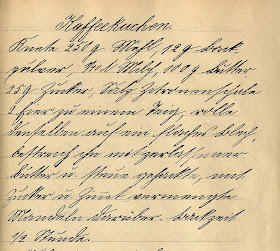 Kaffeekuchen.
Knete 250 g Mehl, 12 g Back
pulver, 1/8 l Milch, 100 g Butter
25 g Zucker, Salz Zitronenschale
2 Eier zu einem Teig, rolle
denselben auf ein flaches Blech,
bestreich ihn mit zerlassener
Butter u. streue gehackte, mit
Zucker u. Zimt vermengte
Mandeln darüber. Backzeit
1/2 Stunde.